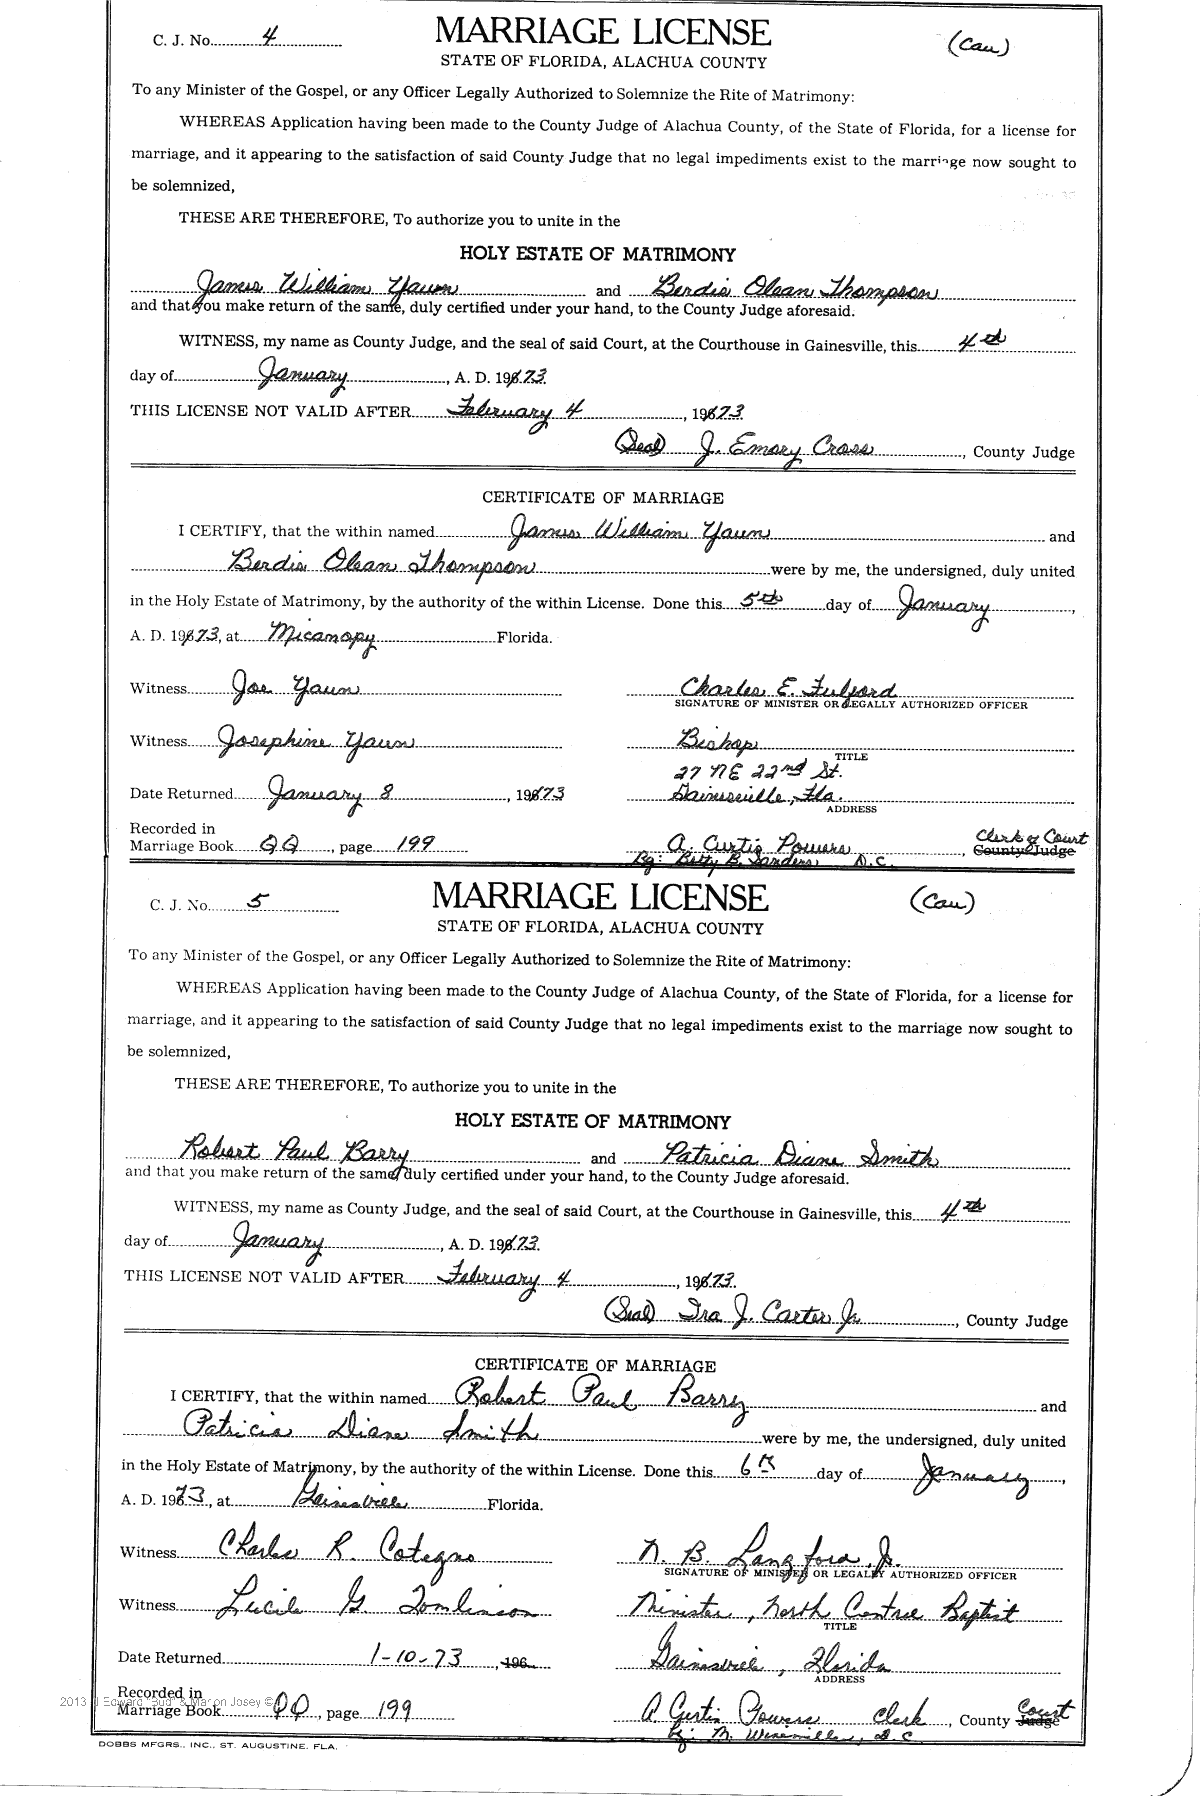 C. J. No. 4 MARRIAGE LICENSE (Cau)
STATE OF FLORIDA, ALACHUA COUNTY
To any Minister of the Gospel, or any Officer Legally Authorized to Solemnize the Rite of Matrimony:
WHEREAS Application having been made to the County Judge of Alachua County, of the State of Florida, for a license for
marriage, and it appearing to the satisfaction of said County Judge that no legal impediments exist to the marriage now sought to
be solemnized,
THESE ARE THEREFORE, To authorize you to unite in the
HOLY ESTATE OF MATRIMONY
James William Yaun and Berdis Olean Thompson
and that you make return of the same, duly certified under your hand, to the County Judge aforesaid.
WITNESS, my name as County Judge, and the seal of said Court, at the Courthouse in Gainesville, this 4th
day of January, A. D. 1973
THIS LICENSE NOT VALID AFTER February 4, 1973
(Seal) J. Emory Cross, County Judge
CERTIFICATE OF MARRIAGE
I CERTIFY, that the within named James William Yaun and
Berdis Olean Thompson were by me, the undersigned, duly united
in the Holy Estate of Matrimony, by the authority of the within License. Done this 5th day of January,
A. D. 1973, at Micanopy Florida.
Witness Joe Yaun Charles E. Fulford
SIGNATURE OF MINISTER OR LEGALLY AUTHORIZED OFFICER
Witness Josephine Yaun Bishop
TITLE
27 NE 22nd St.
Date Returned January 8, 1973 Gainesville, Fla.
ADDRESS
Recorded in Clerk of Court
Marriage Book QQ, page 199 A. Curtis Powers, County Judge
By: Betty B. Sanders D.C.
C. J. No. 5 MARRIAGE LICENSE (Cau)
STATE OF FLORIDA, ALACHUA COUNTY
To any Minister of the Gospel, or any Officer Legally Authorized to Solemnize the Rite of Matrimony:
WHEREAS Application having been made to the County Judge of Alachua County, of the State of Florida, for a license for
marriage, and it appearing to the satisfaction of said County Judge that no legal impediments exist to the marriage now sought to
be solemnized,
THESE ARE THEREFORE, To authorize you to unite in the
HOLY ESTATE OF MATRIMONY
Robert Paul Barry and Patricia Diane Smith
and that you make return of the same, duly certified under your hand, to the County Judge aforesaid.
WITNESS, my name as County Judge, and the seal of said Court, at the Courthouse in Gainesville, this 4th
day of January, A. D. 1973.
THIS LICENSE NOT VALID AFTER February 4, 1973.
(Seal) Ira J. Carter Jr., County Judge
CERTIFICATE OF MARRIAGE
I CERTIFY, that the within named Robert Paul Barry and
Patricia Diane Smith were by me, the undersigned, duly united
in the Holy Estate of Matrimony, by the authority of the within License. Done this 6th day of January,
A. D. 1973, at Gainesville Florida.
Witness Charles R. Cotegno N. B. Langford, Jr.
SIGNATURE OF MINISTER OR LEGALLY AUTHORIZED OFFICER
Witness Lucile G. Tomlinson Minister, North Central Baptist
TITLE
Date Returned 1-10-73, 196 Gainesville, Florida
ADDRESS
Recorded in Court
Marriage Book QQ, page 199 A Curtis Powers Clerk, County Judge
by: M. D.C
2013 Edward "Bud" & Marion Josey ©
DOBBS MFGRS., INC., ST. AUGUSTINE, FLA.